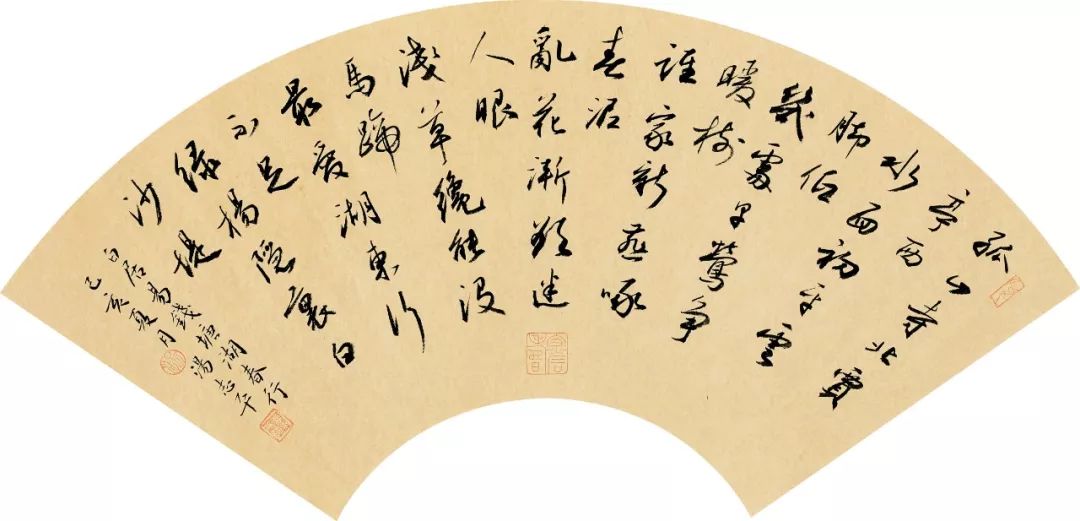 孤山寺北賈
亭西
水面初平雲
脚低
幾處早鶯爭
暖樹
誰家新燕啄
春泥
亂花漸欲迷
人眼
淺草纔能沒
馬蹄
最愛湖東行
不足
綠楊陰裏白
沙堤
白居易錢塘湖春行
己亥夏月湯志平